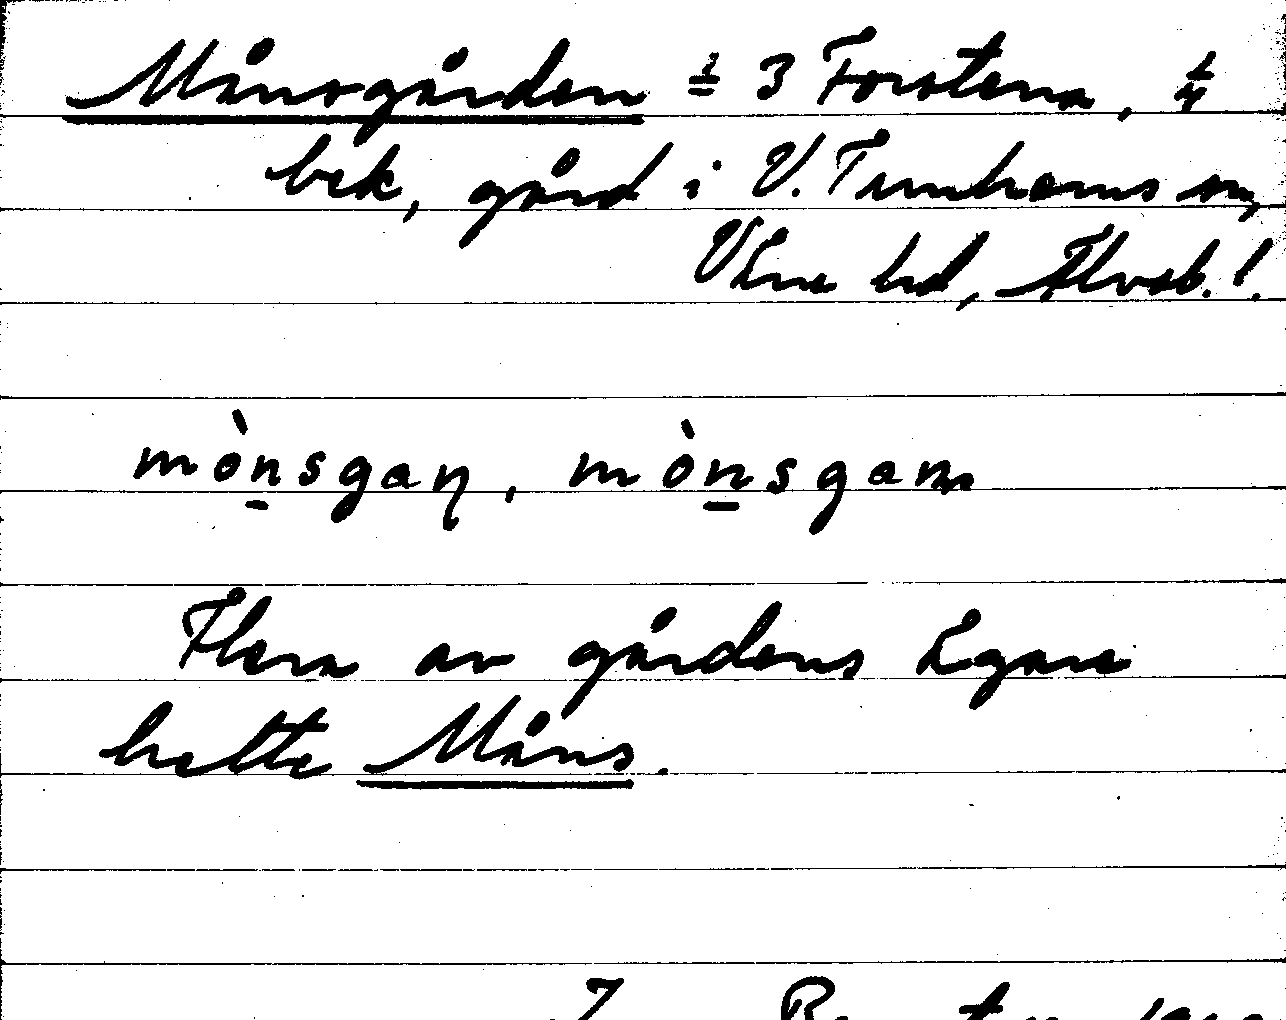 Månsgården = 3 Forstena, 1/4
bek, gård i V. Tunhems sn,
Väne hd, Älvsb. l.
mònsgaɳ, mònsgam
Flera av gårdens ägare
hette Måns.